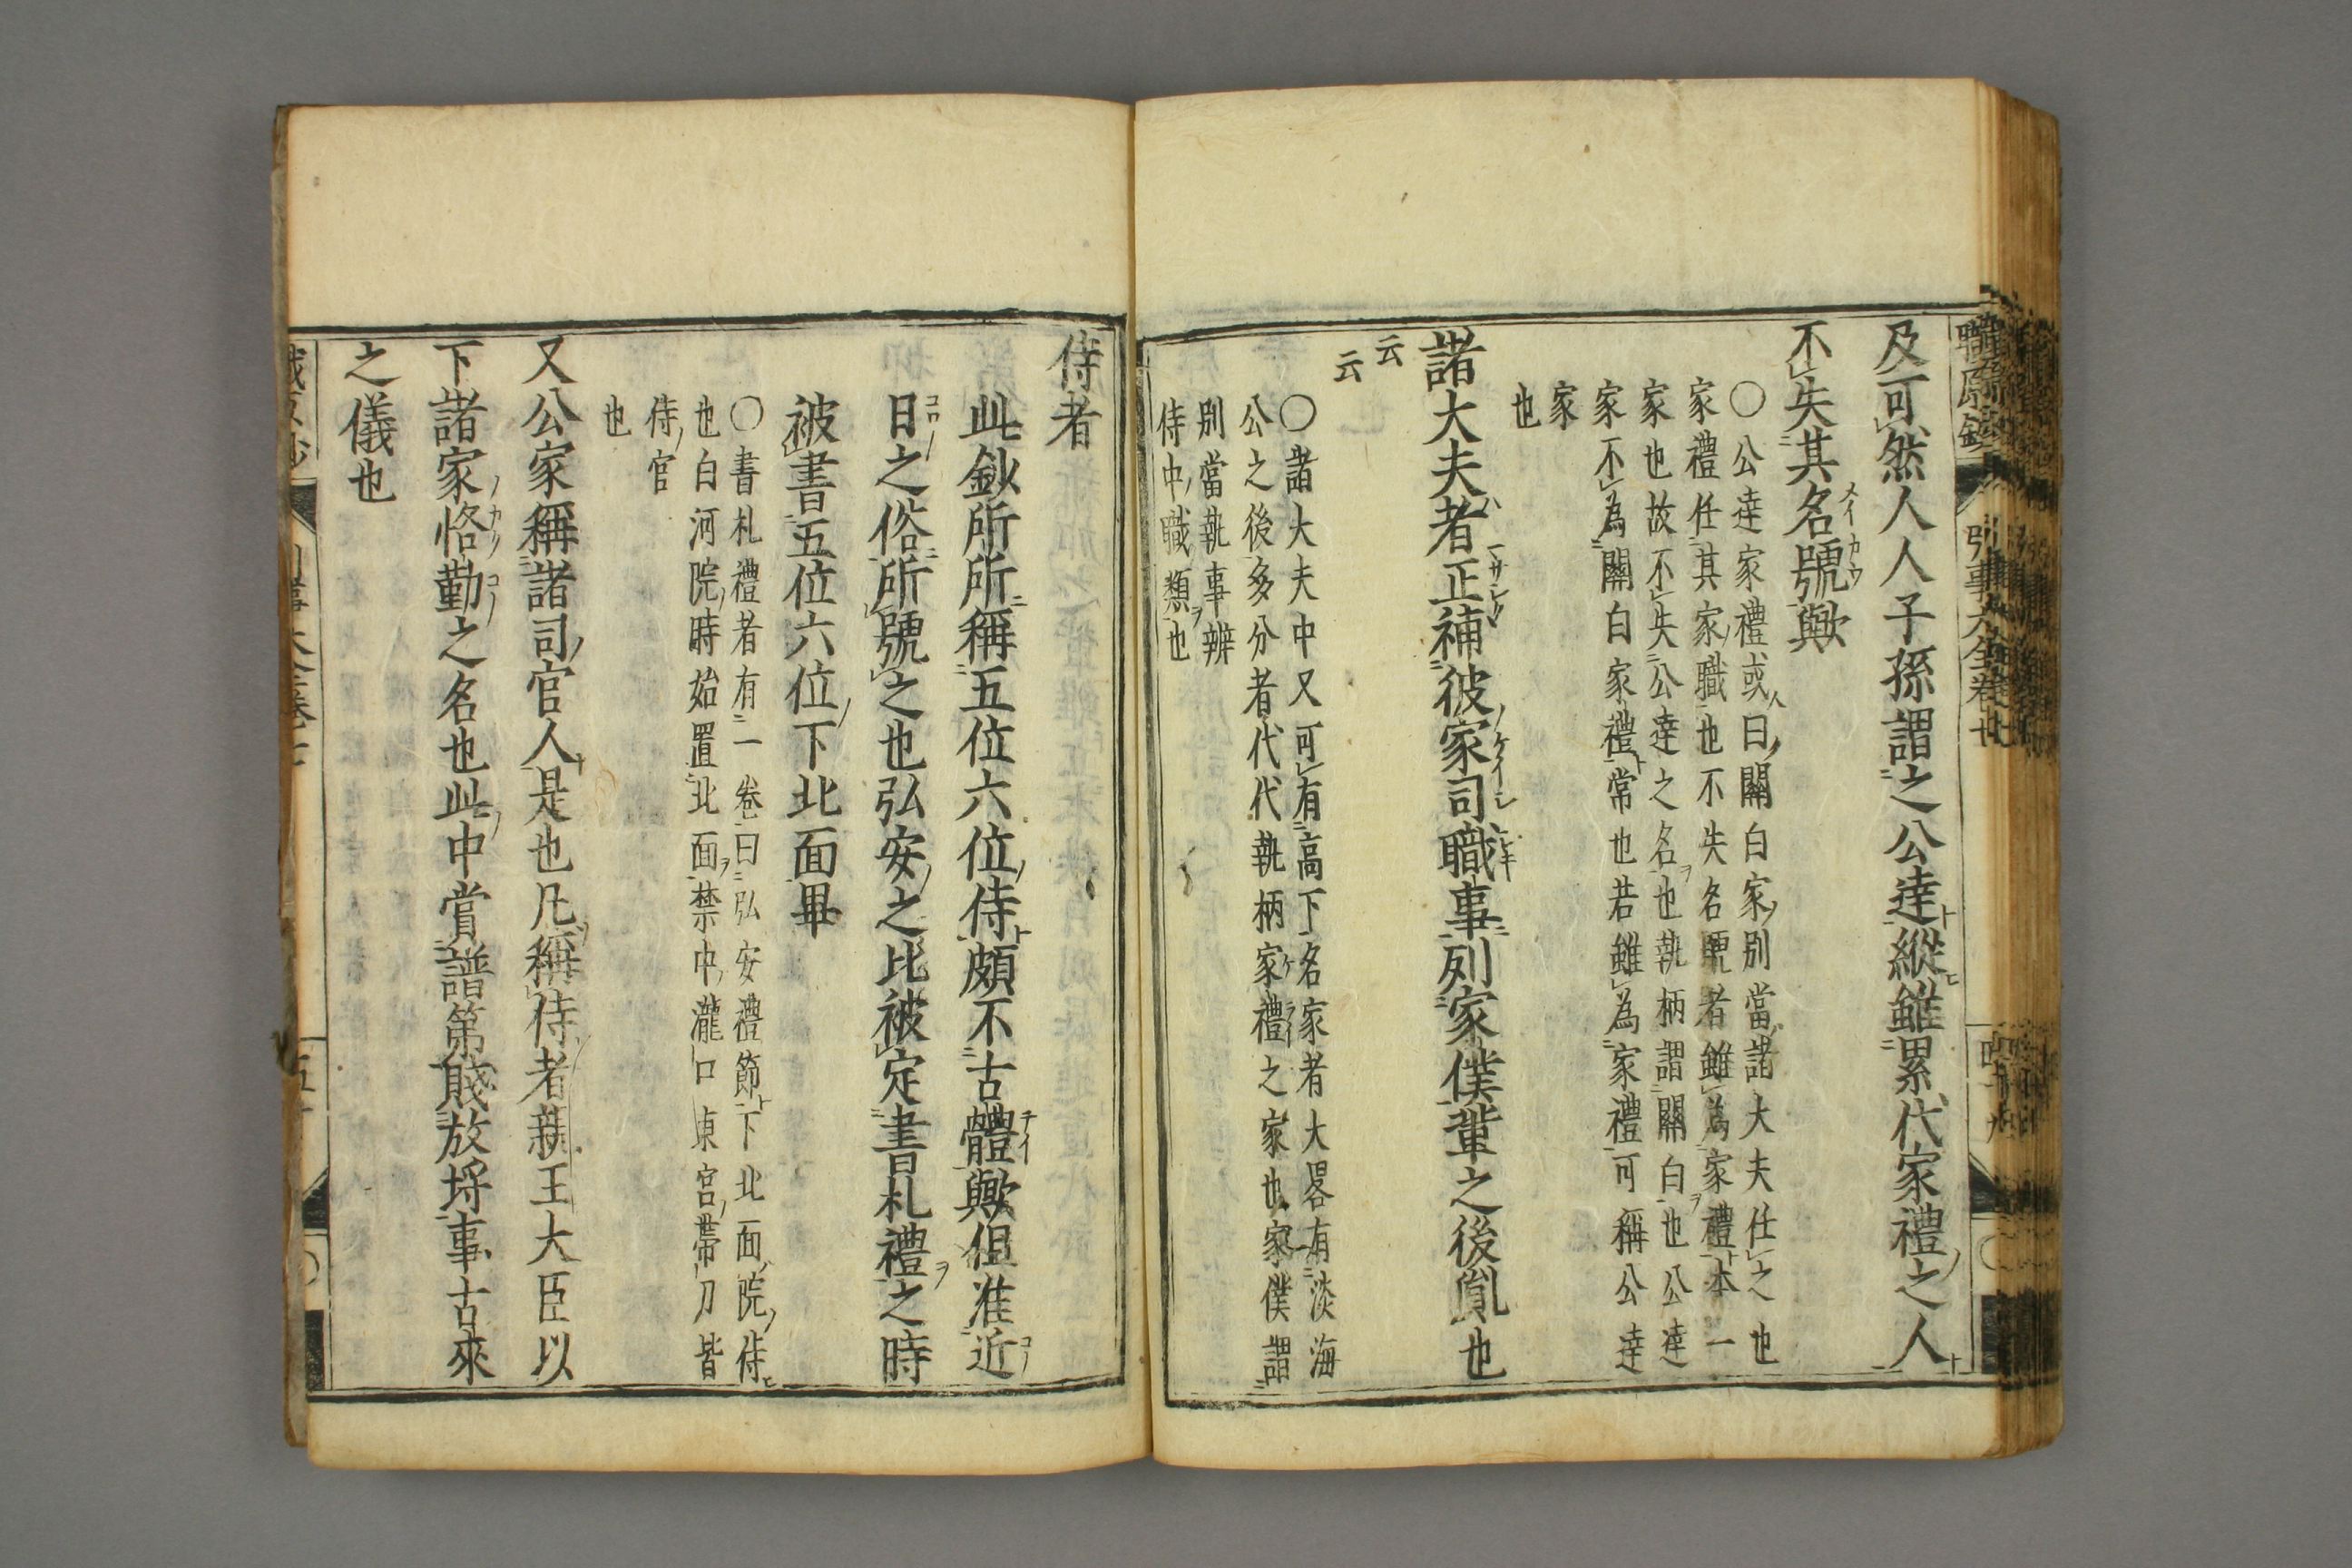 及可然人人子孫謂之公達縱雖累代家禮之人
不失其名號歟
〇公達家禮或曰關白家別當諸大夫任之也
家禮任其家職也不失名聽者雖為家禮本一
家也故不失公達之名也執柄謂關白也公達
家不為關白家禮常也若雖為家禮可稱公達
家
也
諸大夫者正補彼家司職事列家僕軰之後胤也
云
云
〇諸大夫中又可有高下名家者大畧有淡海
公之後多分者代代執柄家禮之家也家僕謂
別當執事辨
侍中職類也
侍者
此鈔所所稱五位六位侍頗不古體歟但准近
日之俗所號之也弘安之比被定書札禮之時
被書五位六位下北面畢
〇書札禮者有一卷曰弘安禮節下北面院侍
也白河院時始置北面禁中瀧口東宮帶刀皆
侍官
也
又公家稱諸司官人是也凡稱侍者親王大臣以
下諸家恪勤之名也此中賞譜第賤放埓事古來
之儀也